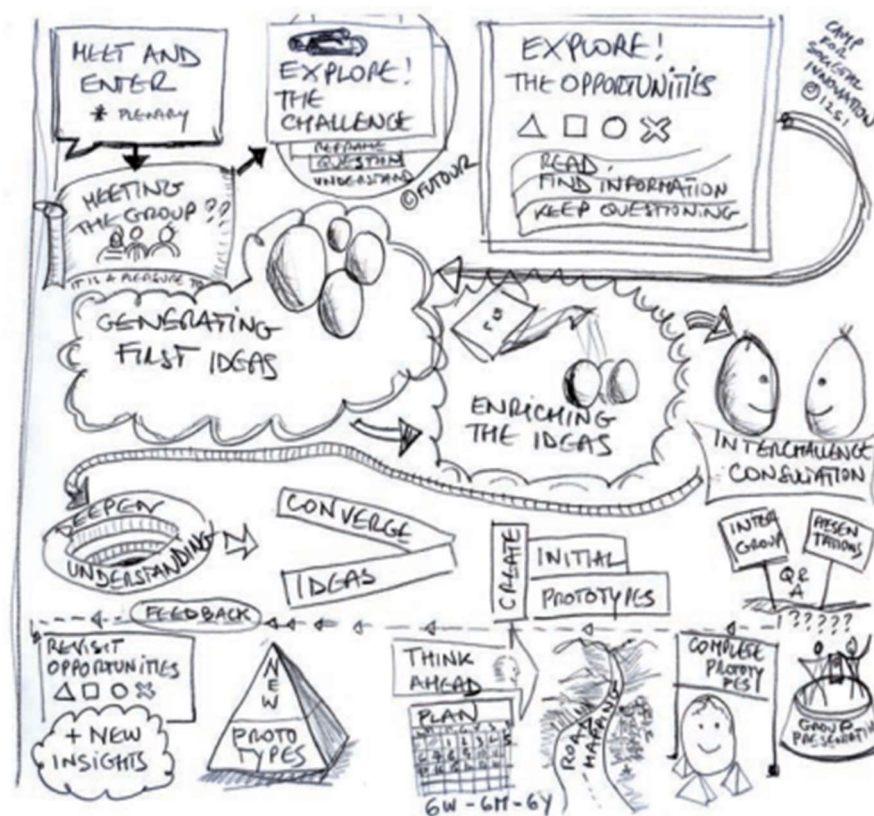 MEET AND
ENTER
* PLENARY
EXPLORE!
THE
CHALLENGE
REFRAME
QUESTION
UNDERSTAND
©FUTOUR
EXPLORE!
THE OPPORTUNITIES
READ
FIND INFORMATION
KEEP QUESTIONING
CAMP
FOR
SOCIETAL
INNOVATION
MEETING
THE GROUP??
IT IS A PLEASURE TO
GENERATING
FIRST IDEAS
ENRICHING
THE IDEAS
INTERCHALLENGE
CONSULTATION
DEEPEN
UNDERSTANDING
CONVERGE
IDEAS
CREATE
INITIAL
PROTOTYPES
INTER
GROUP
PRESEN
TATIONS
Q &
A
FEEDBACK
?????
REVISIT
OPPORTUNITIES
+ NEW
INSIGHTS
NEW
PROTO
TYPES
THINK
AHEAD
PLAN
6W-6M-6Y
ROAD
MAPPING
COMPLETE
PROTOT
YPES!
GROUP
PRESENTATION